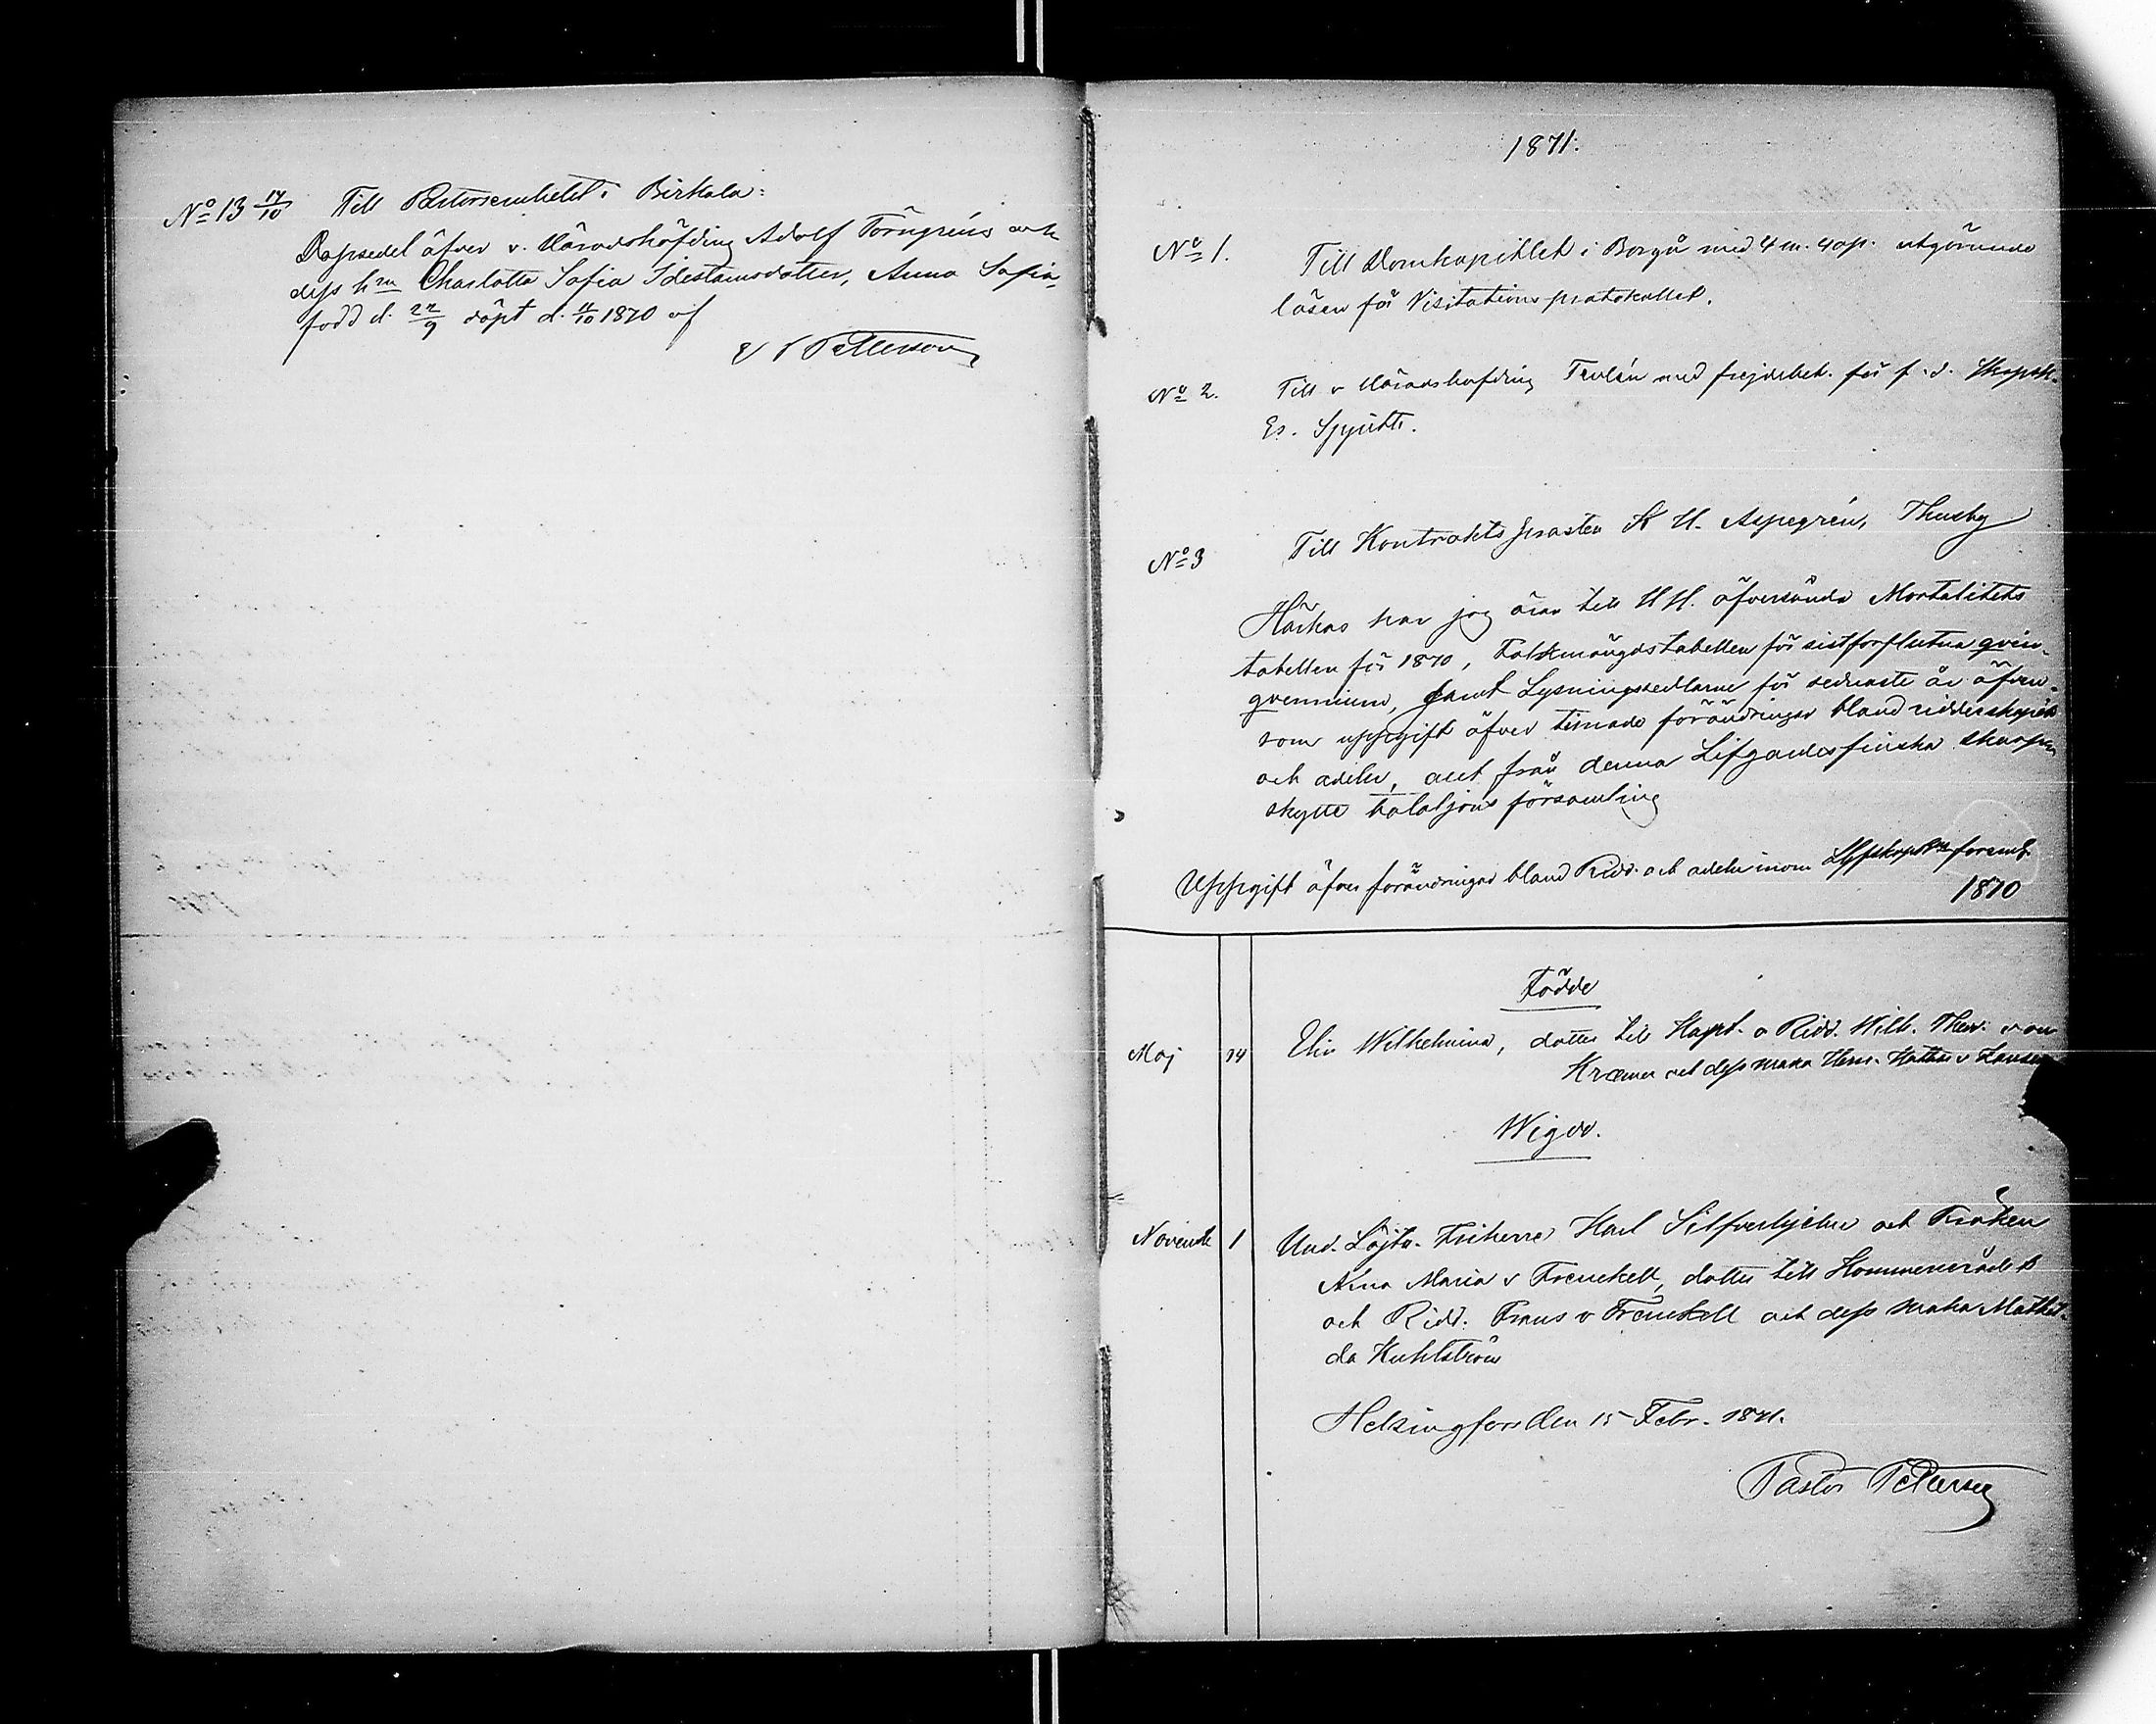 No 13 14/10 Till Pastorsembetet i Birkala:
Dopsedel öfver v. Häradshöfding Adolf Törngréns och
dess h:ru Charlotta Sofia Idestamsdotter, Anna Sofia
född d. 22/9 döpt d. 4/10 1870 af
Petterson
1871.
No 1. Till Domkapitlet i Borgå med 4 m. 40 p. utgörande
lösen för Visitations protokollet.
No 2. Till v Häradshöfding med frejdebet. för f.d.
Es.
No 3 Till Kontrakts prosten K H. Aspegrén, Thusby
Härhos har jag äran till H H. öfversända Mortalitets
tabellen för 1870, Folkmängdstabellen för sistförflutna qvin-
qvennium, samt Lysningssedlarne för sednaste år äfven-
som uppgift öfver timade förändringar bland ridderskapet
och adeln, allt från denna Lifgardes finska skarp
skytte bataljons församling
Uppgift öfver förändringar bland Ridd. och adeln inom forsml.
1870
Födde
Maj 14 Elin Wilhelmina, dotter till Kapt. o Ridd. Wilh. Theod. von
Kræmer och dess maka
Wigde.
Novemb 1 Und. Löjtn. Friherre Karl Silfverhjelm och Fröken
Nina Maria v Frenckell, dotter till Kommerserådet
och Ridd. Frans v Frenckell och dess maka Mathil-
da Kuhlström
Helsingfors den 15 Febr. 1871.
Pastor Petterson